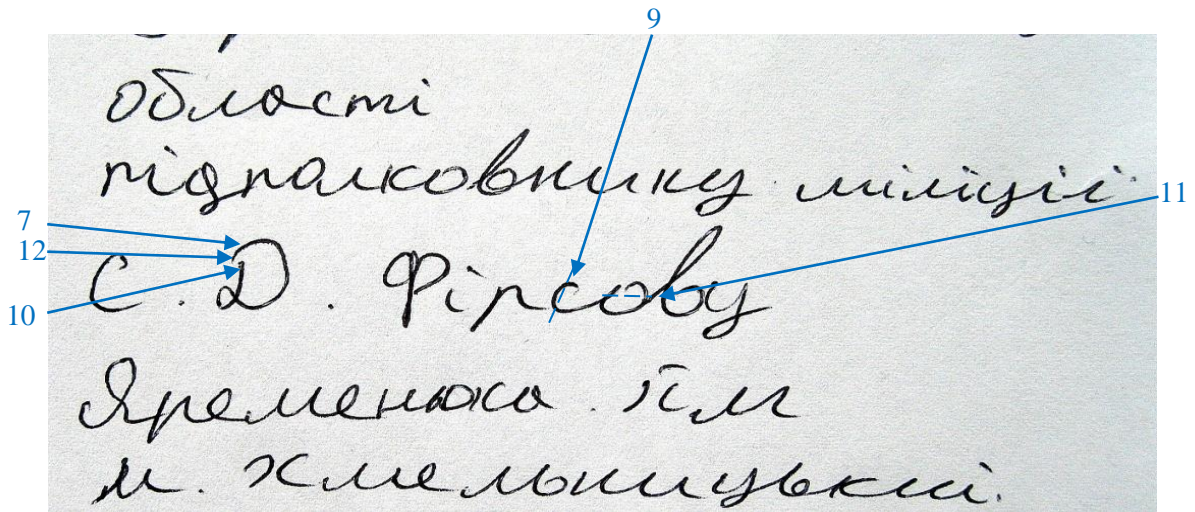 9
області
підполковнику міліції
11
7
12
10
С. Д. Фірсову
Яременюка
м. Хмельницький.